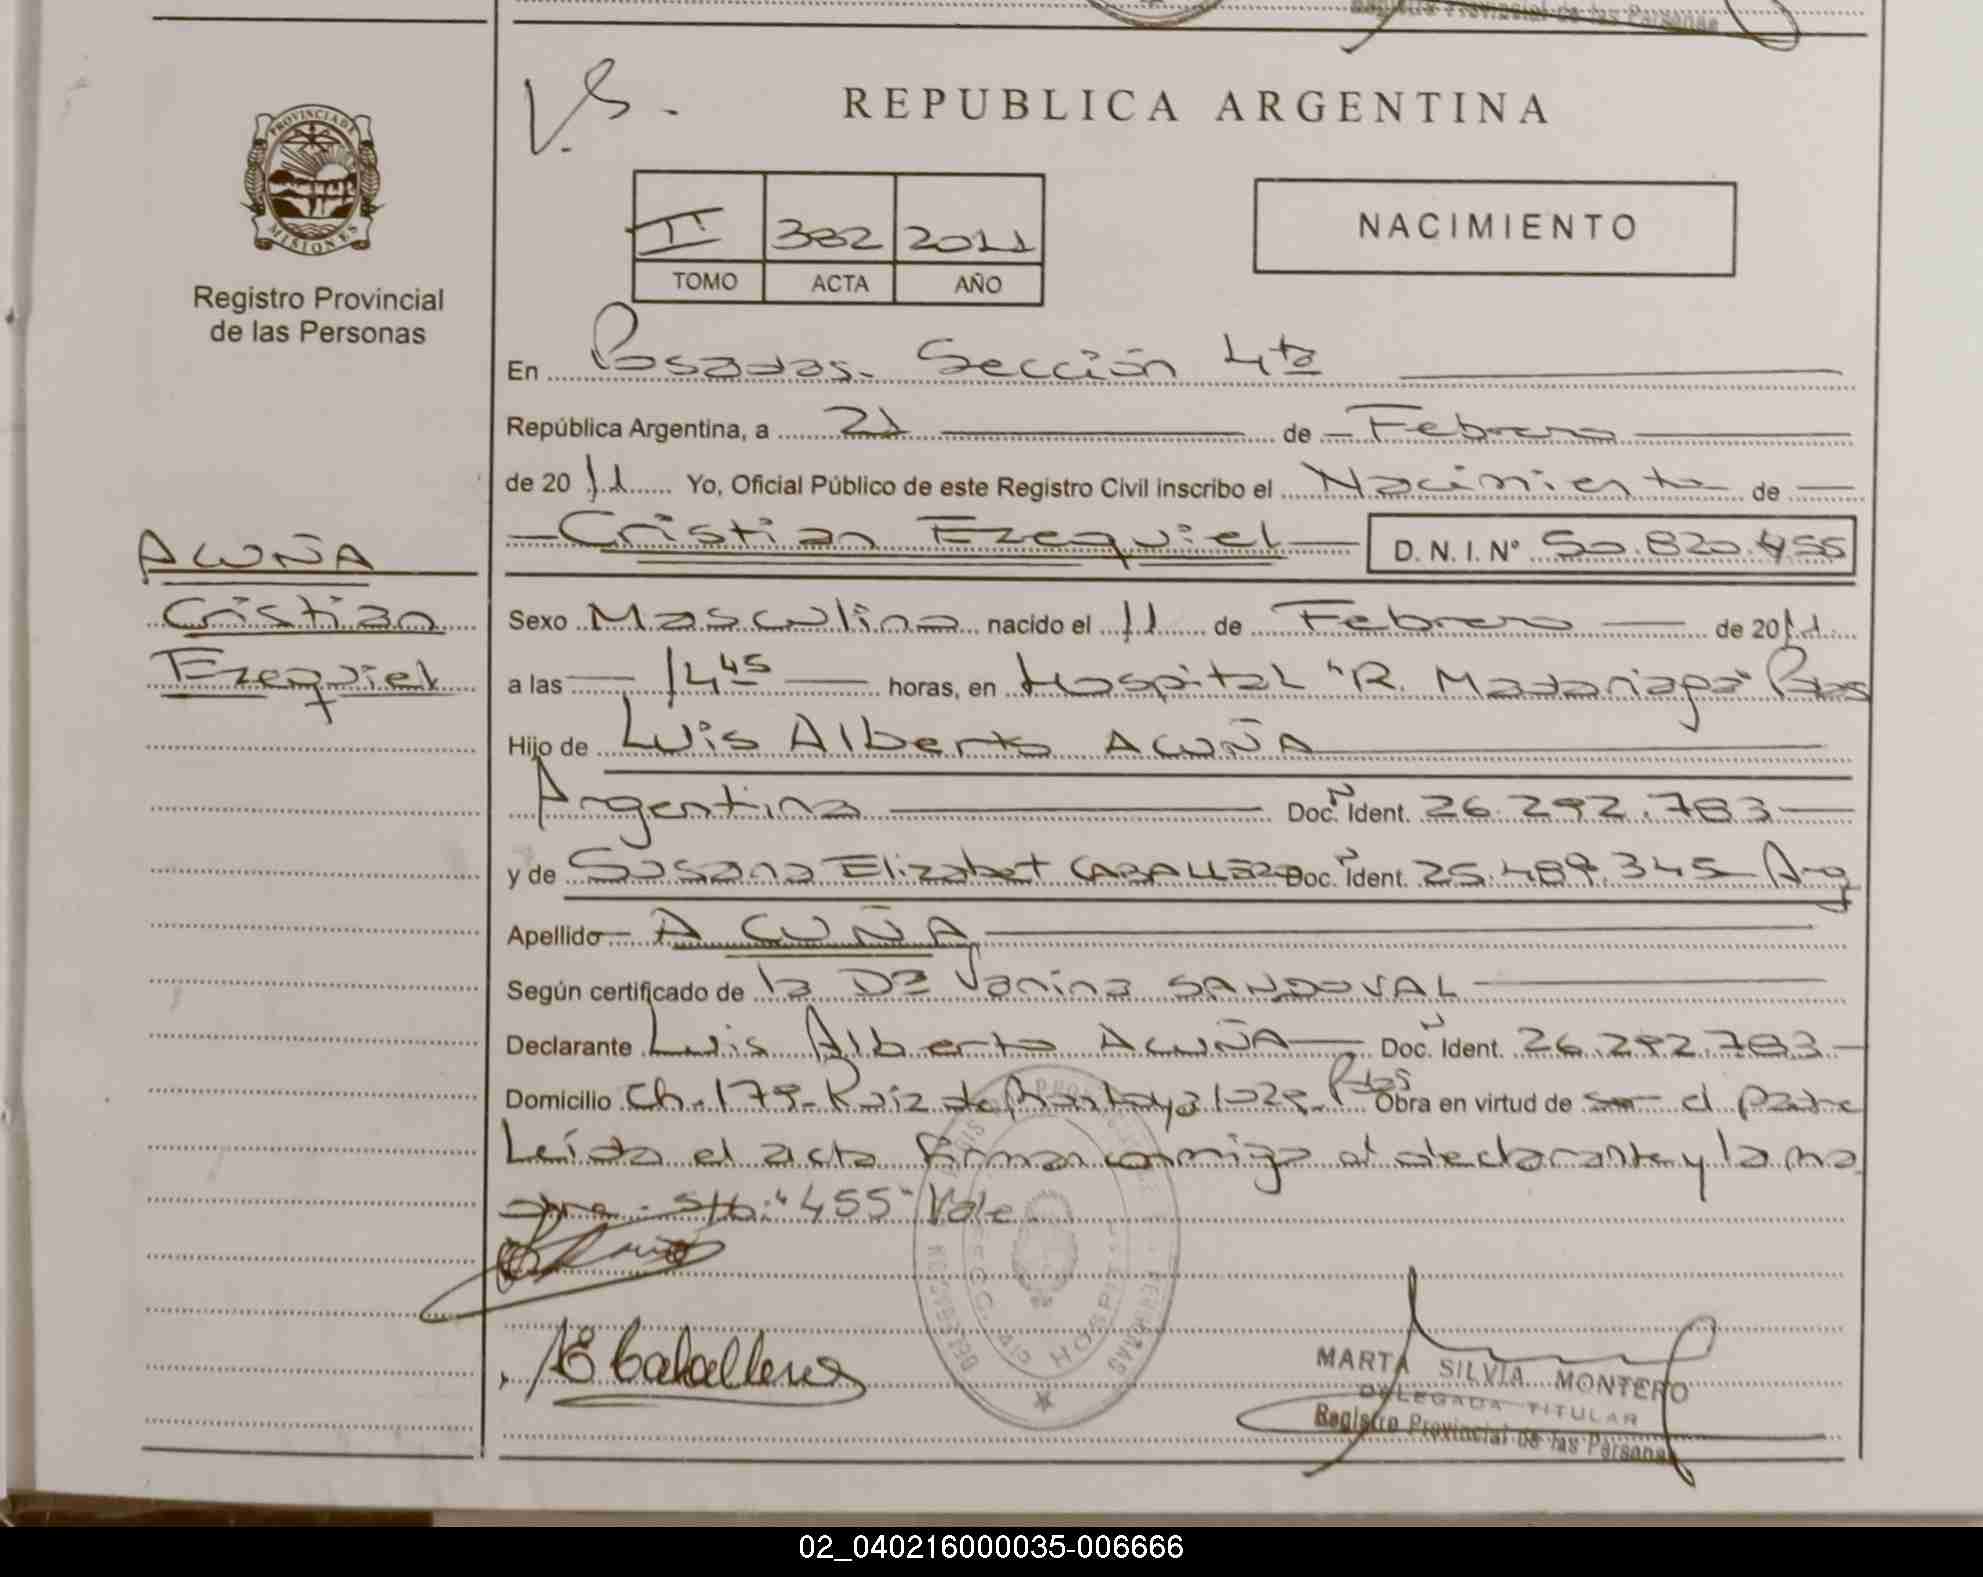 Registro Provincial de las Personas
V.S.
REPUBLICA ARGENTINA
PROVINCIA DE
MISIONES
Registro Provincial
de las Personas
II 382 2011
TOMO ACTA AÑO
NACIMIENTO
En Posadas. Sección 4ta
República Argentina, a 21 de Febrero
de 2011 Yo, Oficial Público de este Registro Civil inscribo el Nacimiento de
Cristian Ezequiel D. N. I. N° 50.820.455
ACUÑA
Cristian
Ezequiel
Sexo Masculino nacido el 11 de Febrero de 2011
a las 14 45 horas, en Hospital "R. Madariaga" Pdas
Hijo de Luis Alberto ACUÑA
Argentina Doc. Ident. 26.292.783
y de Susana Elizabet CABALLERO Doc. Ident. 25.489.345 Arg
Apellido ACUÑA
Según certificado de la Dra Vanina SANDOVAL
Declarante Luis Alberto ACUÑA Doc. Ident. 26.292.783
Domicilio Ch. 179- Ruiz de Montoya Pdas Obra en virtud de ser el padre
Leída el acta firman conmigo el declarante y la ma
dre. S/b: "455" Vale
E Caballero
HOSPITAL
MARTA SILVIA MONTERO
DELEGADA TITULAR
Registro Provincial de las Personas
02_040216000035-006666